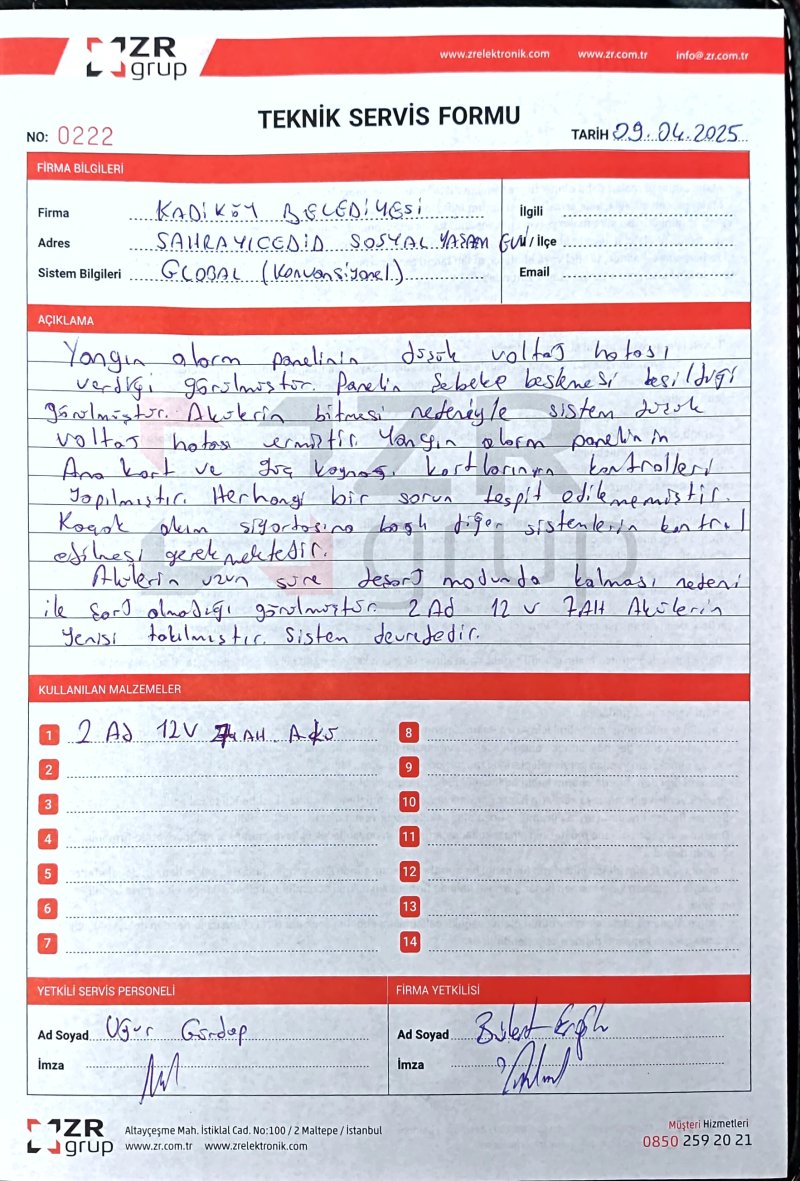 ZR grup
www.zrelektronik.com www.zr.com.tr info@.zr.com.tr
TEKNİK SERVİS FORMU
NO: 0222
TARİH 09.04.2025
FİRMA BİLGİLERİ
Firma KADIKÖY BELEDİYESİ
İlgili
Adres SAHRAYICEDİD SOSYAL YAŞAM EVİ
/ İlçe
Sistem Bilgileri GLOBAL (Konvansiyonel)
Email
AÇIKLAMA
Yangın alarm panelinin düşük voltaj hatası
verdiği görülmüştür. Panelin Şebeke beslemesi kesildiği
görülmüştür. Akülerin bitmesi nedeniyle sistem düşük
voltaj hatası vermiştir. Yangın alarm panelinin
Ana kart ve güç kaynağı kartlarının kontrolleri
yapılmıştır. Herhangi bir sorun tespit edilememiştir.
Kaçak akım sigortasına bağlı diğer sistemlerin kontrol
edilmesi gerekmektedir.
Akülerin uzun süre deşarj modunda kalması nedeni
ile şarj olmadığı görülmüştür. 2 Ad 12 V 7AH Akülerin
yenisi takılmıştır. Sistem devrededir.
KULLANILAN MALZEMELER
1 2 Ad 12V 7AH Akü
2
3
4
5
6
7
8
9
10
11
12
13
14
YETKİLİ SERVİS PERSONELİ
Ad Soyad Uğur
İmza
FİRMA YETKİLİSİ
Ad Soyad Bülent
İmza
ZR grup
Altayçeşme Mah. İstiklal Cad. No:100 / 2 Maltepe / İstanbul
www.zr.com.tr www.zrelektronik.com
Müşteri Hizmetleri
0850 259 20 21